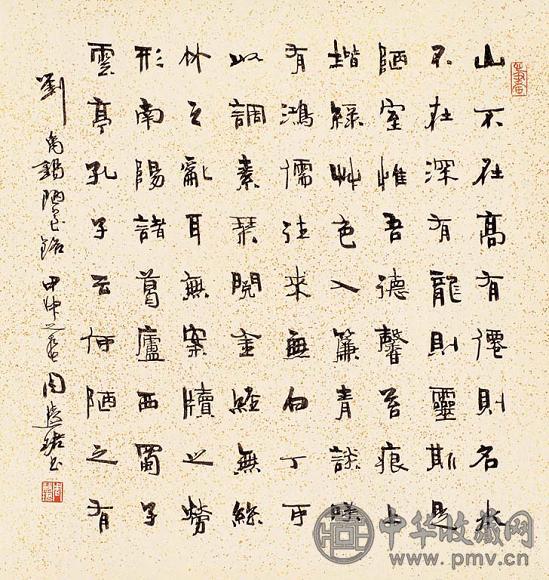 山不在高有僊則名水
不在深有龍則靈斯是
陋室惟吾德馨苔痕上
堦綠艸色入簾青談咲
有鴻儒往來無白丁可
以調素琴閱金經無絲
竹之亂耳無案牘之勞
形南陽諸葛廬西蜀子
雲亭孔子云何陋之有
劉禹錫陋室銘 甲申之春 周慧珺書
中华收藏网
www.pmv.cn